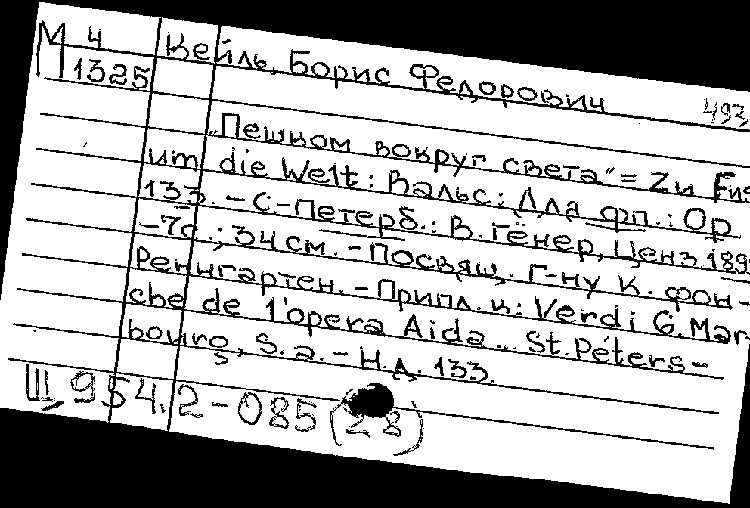 М 4
1325
Кейль, Борис Федорович
493
„Пешком вокруг света“ = Zu Fus
um die Welt: Вальс: Для фп.: Ор
133. – С-Петерб.: В. Гёнер, Ценз. 189
–7с.; 34 см. – Посвящ. Г-ну К. фон –
Реннгартен. – Припл. к: Verdi G. Mar-
che de l'opera Aida... St. Péters-
bourg, S. a. – Н.д. 133.
Щ 954.2–085 (28)